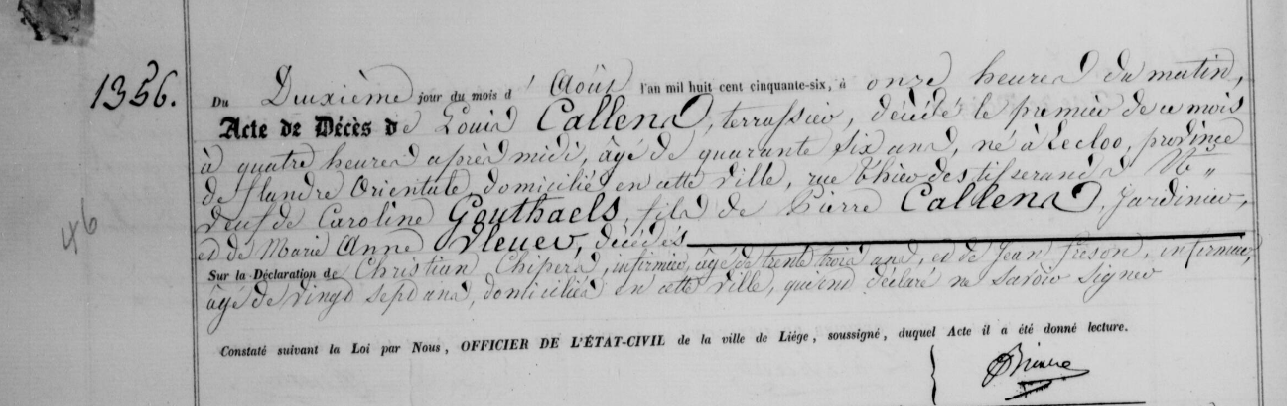 1356. Du Deuxième jour du mois d'Août l'an mil huit cent cinquante-six, à onze heures du matin,
Acte de Décès de Louis Callens, terrassier, décédé le premier de ce mois
à quatre heures après midi, âgé de quarante six ans, né à Lecloo, province
de flandre Orientale domicilié en cette ville, rue des tisserands N° "
veuf de Caroline Geuthaels, fils de Pierre Callens, Jardinier,
et de Marie Anne décédés
46
Sur la Déclaration de Christian Chipers, infirmier, âgé de trente trois ans, et de Jean frison, infirmier,
âgé de vingt sept ans, domiciliés en cette ville, qui ont déclaré ne savoir signer
Constaté suivant la Loi par Nous, OFFICIER DE L'ÉTAT-CIVIL de la ville de Liége, soussigné, duquel Acte il a été donné lecture.